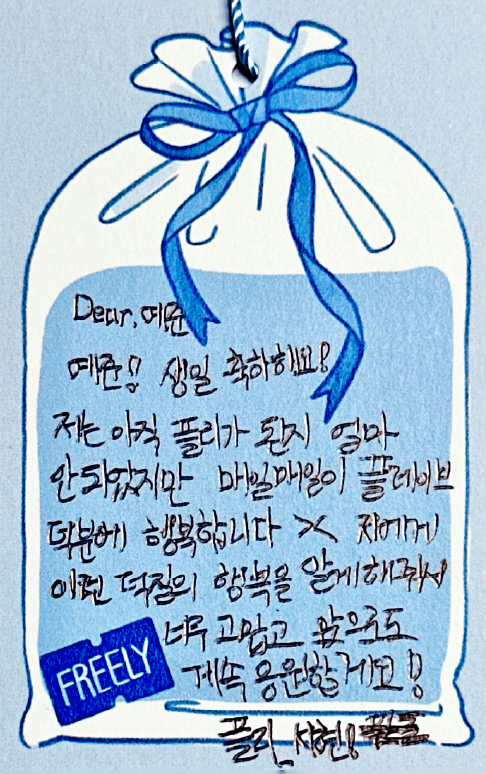 Dear, 예준
예준!! 생일 축하해요!
저는 아직 플리가 된지 얼마
안되었지만 매일매일이 플레이브
덕분에 행복합니다 >< 저에게
이런 덕질의 행복을 알게해줘서
너무 고맙고 앞으로도
계속 응원할게요!!
FREELY
플리_